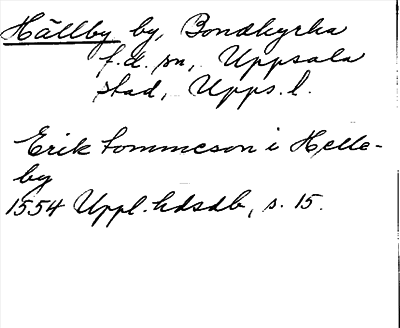 Hällby by, Bondkyrka
f.d. sn, Uppsala
stad, Upps. l.
Erik Tommeson i Helle-
by
1554 Uppl. hdsdb, s. 15.